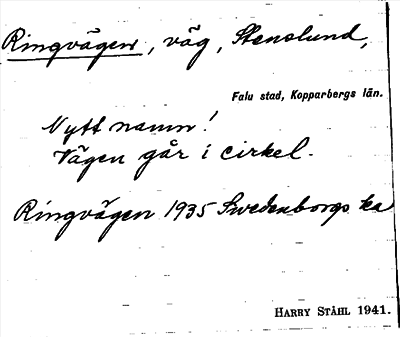 Ringvägen, väg, Stenslund,
Falu stad, Kopparbergs län.
Nytt namn!
Vägen går i cirkel.
Ringvägen 1935 Swedenborgs ka
HARRY STÅHL 1941.